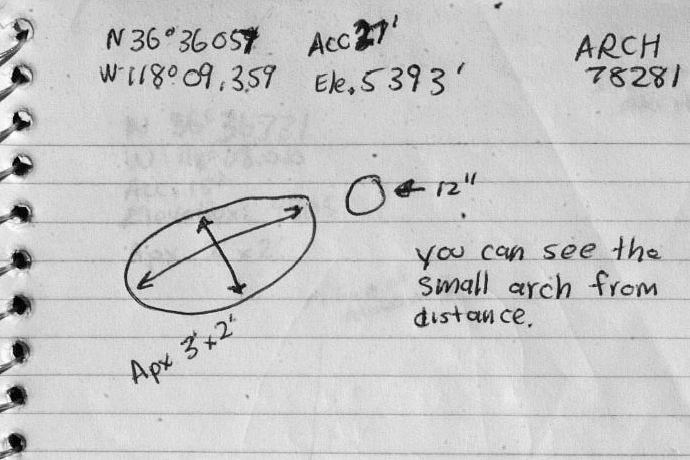 N 36° 36 057 Acc 27' ARCH
W 118° 09,359 Ele. 5393' 78281
← 12"
you can see the
small arch from
distance.
Apx 3' x 2'